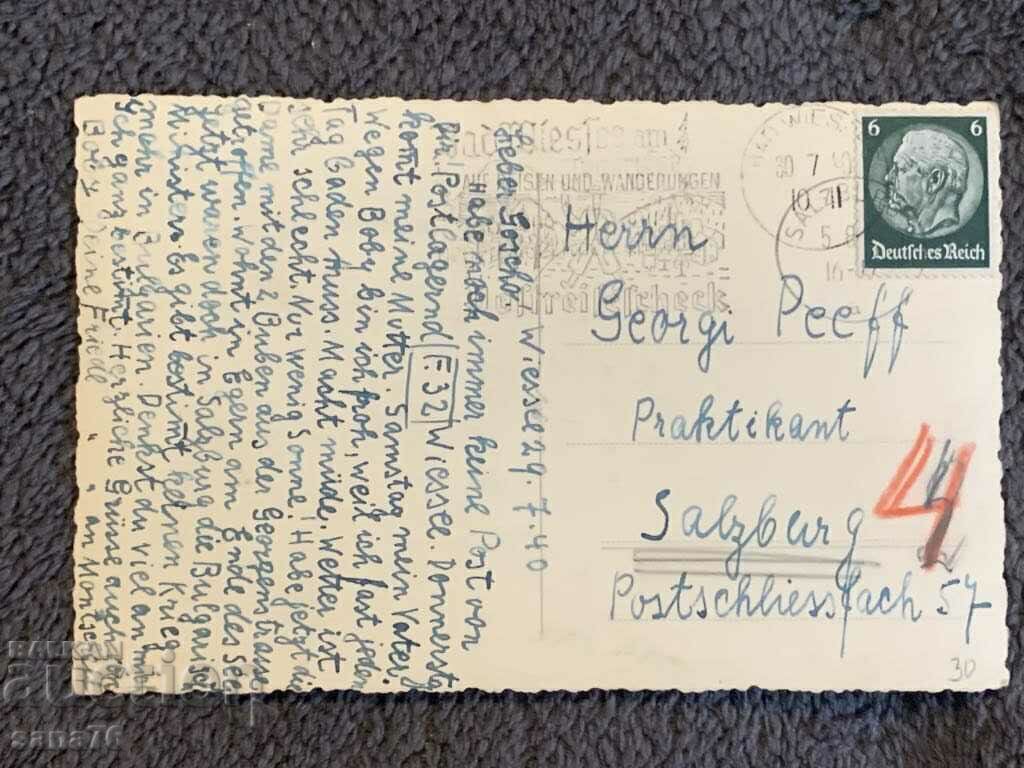 Wiessee 29.7.40
Lieber Goscho
Habe noch immer keine Post von
Dir! Postlagernd F.32 Wiessee. Donnerstg
komt meine Mutter. Samstag mein Vater,
Wegen Boby bin ich froh, weil ich fast jeden
Tag baden muss. Macht müde. Wetter ist
sehr schlecht. Nur wenig Sonne! Habe jetzt die
Dame mit den 2 Buben aus der Georgenstrasse
getroffen. Wohnt in Egern am Ende des See
Jetzt waren doch in Salzburg die Bulgar.
Minister. Es gibt bestimt keinen Krieg
mehr in Bulgarien. Denkst du viel an
Ich ganz bestimt. Herzliche Grüsse auch
Deine Friedl
Bad Wiessee am
AUF REISEN UND WANDERUNGEN
Postreisescheck
BAD WIESSEE
30 7 40
10-11
SALZBURG
6 6
Deutsches Reich
Herrn
Georgi Peeff
Praktikant
Salzburg
Postschliessfach 57
4
30
BALKAN
auction
sana76